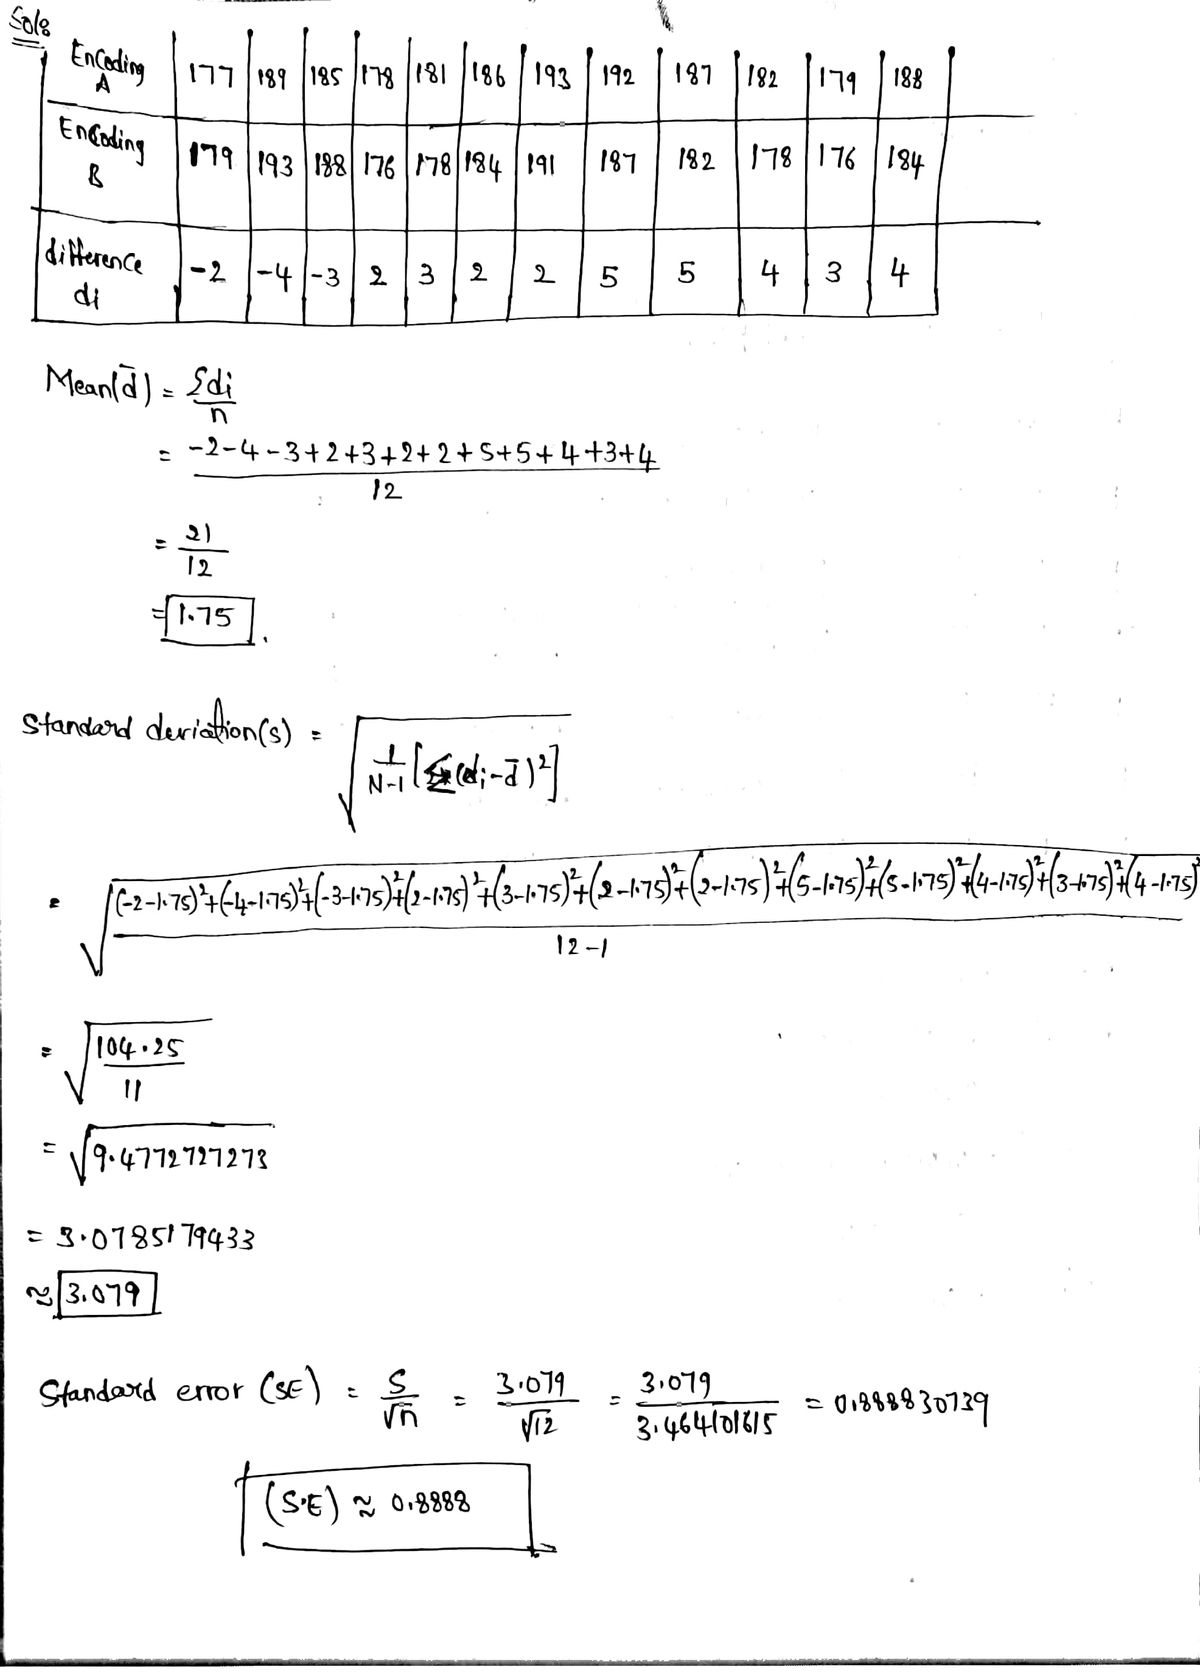 Sol:
Encoding A | 177 | 189 | 185 | 178 | 181 | 186 | 193 | 192 | 187 | 182 | 179 | 188
Encoding B | 179 | 193 | 188 | 176 | 178 | 184 | 191 | 187 | 182 | 178 | 176 | 184
difference di | -2 | -4 | -3 | 2 | 3 | 2 | 2 | 5 | 5 | 4 | 3 | 4
Mean(d̄) = Σdi / n
= -2-4-3+2+3+2+2+5+5+4+3+4 / 12
= 21 / 12
= 1.75.
Standard deviation(s) = √(1/N-1 [Σ(di-d̄)²])
= √((-2-1.75)²+(-4-1.75)²+(-3-1.75)²+(2-1.75)²+(3-1.75)²+(2-1.75)²+(2-1.75)²+(5-1.75)²+(5-1.75)²+(4-1.75)²+(3-1.75)²+(4-1.75)² / 12-1)
= √(104.25 / 11)
= √9.4772727273
= 3.0785179433
≈ 3.079
Standard error (SE) = S/√n = 3.079/√12 = 3.079/3.464101615 = 0.888830739
(S.E) ≈ 0.8888